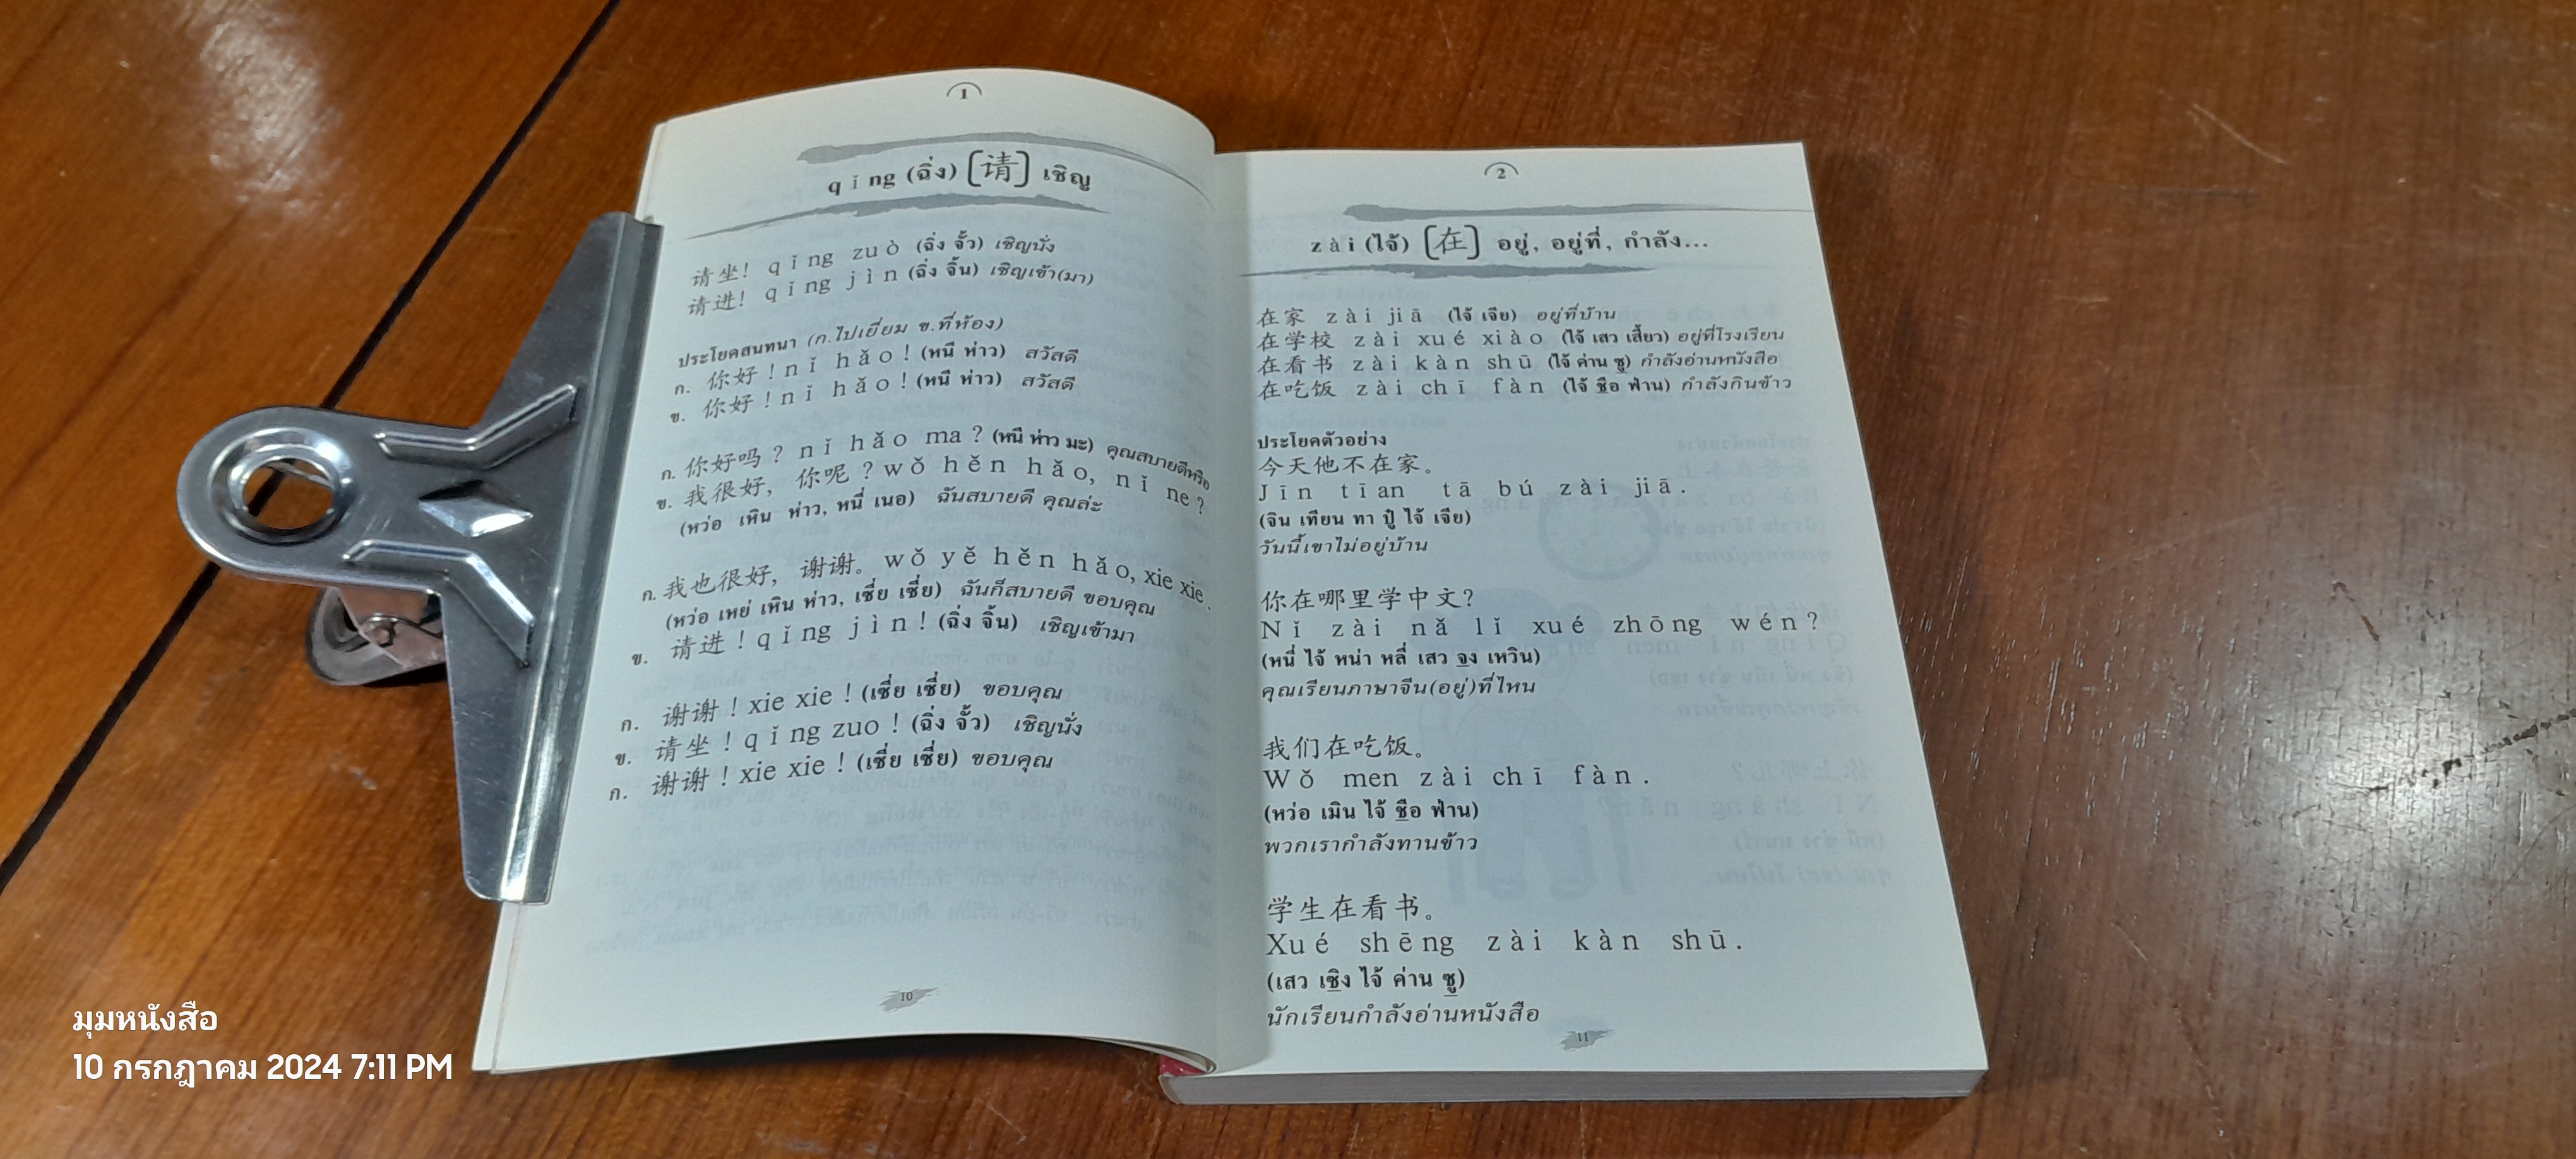 1
qǐng (ฉิ่ง) [请] เชิญ
请坐! qǐng zuò (ฉิ่ง จั้ว) เชิญนั่ง
请进! qǐng jìn (ฉิ่ง จิ้น) เชิญเข้า(มา)
ประโยคสนทนา (ก.ไปเยี่ยม ข.ที่ห้อง)
ก. 你好！nǐ hǎo! (หนี ห่าว) สวัสดี
ข. 你好！nǐ hǎo! (หนี ห่าว) สวัสดี
ก. 你好吗？nǐ hǎo ma? (หนี ห่าว มะ) คุณสบายดีหรือ
ข. 我很好，你呢？wǒ hěn hǎo, nǐ ne?
(หว่อ เหิน ห่าว, หนี่ เนอ) ฉันสบายดี คุณล่ะ
ก. 我也很好，谢谢。wǒ yě hěn hǎo, xie xie.
(หว่อ เหย่ เหิน ห่าว, เซี่ย เซี่ย) ฉันก็สบายดี ขอบคุณ
ข. 请进！qǐng jìn! (ฉิ่ง จิ้น) เชิญเข้ามา
ก. 谢谢！xie xie! (เซี่ย เซี่ย) ขอบคุณ
ข. 请坐！qǐng zuo! (ฉิ่ง จั้ว) เชิญนั่ง
ก. 谢谢！xie xie! (เซี่ย เซี่ย) ขอบคุณ
10
2
zài (ไจ้) [在] อยู่, อยู่ที่, กำลัง...
在家 zài jiā (ไจ้ เจีย) อยู่ที่บ้าน
在学校 zài xué xiào (ไจ้ เสว เสี้ยว) อยู่ที่โรงเรียน
在看书 zài kàn shū (ไจ้ ค่าน ซู) กำลังอ่านหนังสือ
在吃饭 zài chī fàn (ไจ้ ชือ ฟ่าน) กำลังกินข้าว
ประโยคตัวอย่าง
今天他不在家。
Jīn tīan tā bú zài jiā.
(จิน เทียน ทา ปู๋ ไจ้ เจีย)
วันนี้เขาไม่อยู่บ้าน
你在哪里学中文？
Nǐ zài nǎ lǐ xué zhōng wén?
(หนี่ ไจ้ หน่า หลี่ เสว จง เหวิน)
คุณเรียนภาษาจีน(อยู่)ที่ไหน
我们在吃饭。
Wǒ men zài chī fàn.
(หว่อ เมิน ไจ้ ชือ ฟ่าน)
พวกเรากำลังทานข้าว
学生在看书。
Xué shēng zài kàn shū.
(เสว เซิง ไจ้ ค่าน ซู)
นักเรียนกำลังอ่านหนังสือ
11
มุมหนังสือ
10 กรกฎาคม 2024 7:11 PM